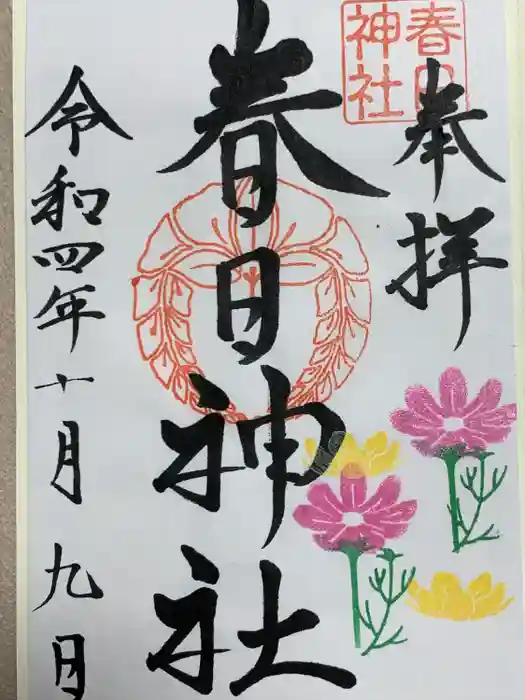 奉拝
春日神社
春日神社
令和四年十月九日